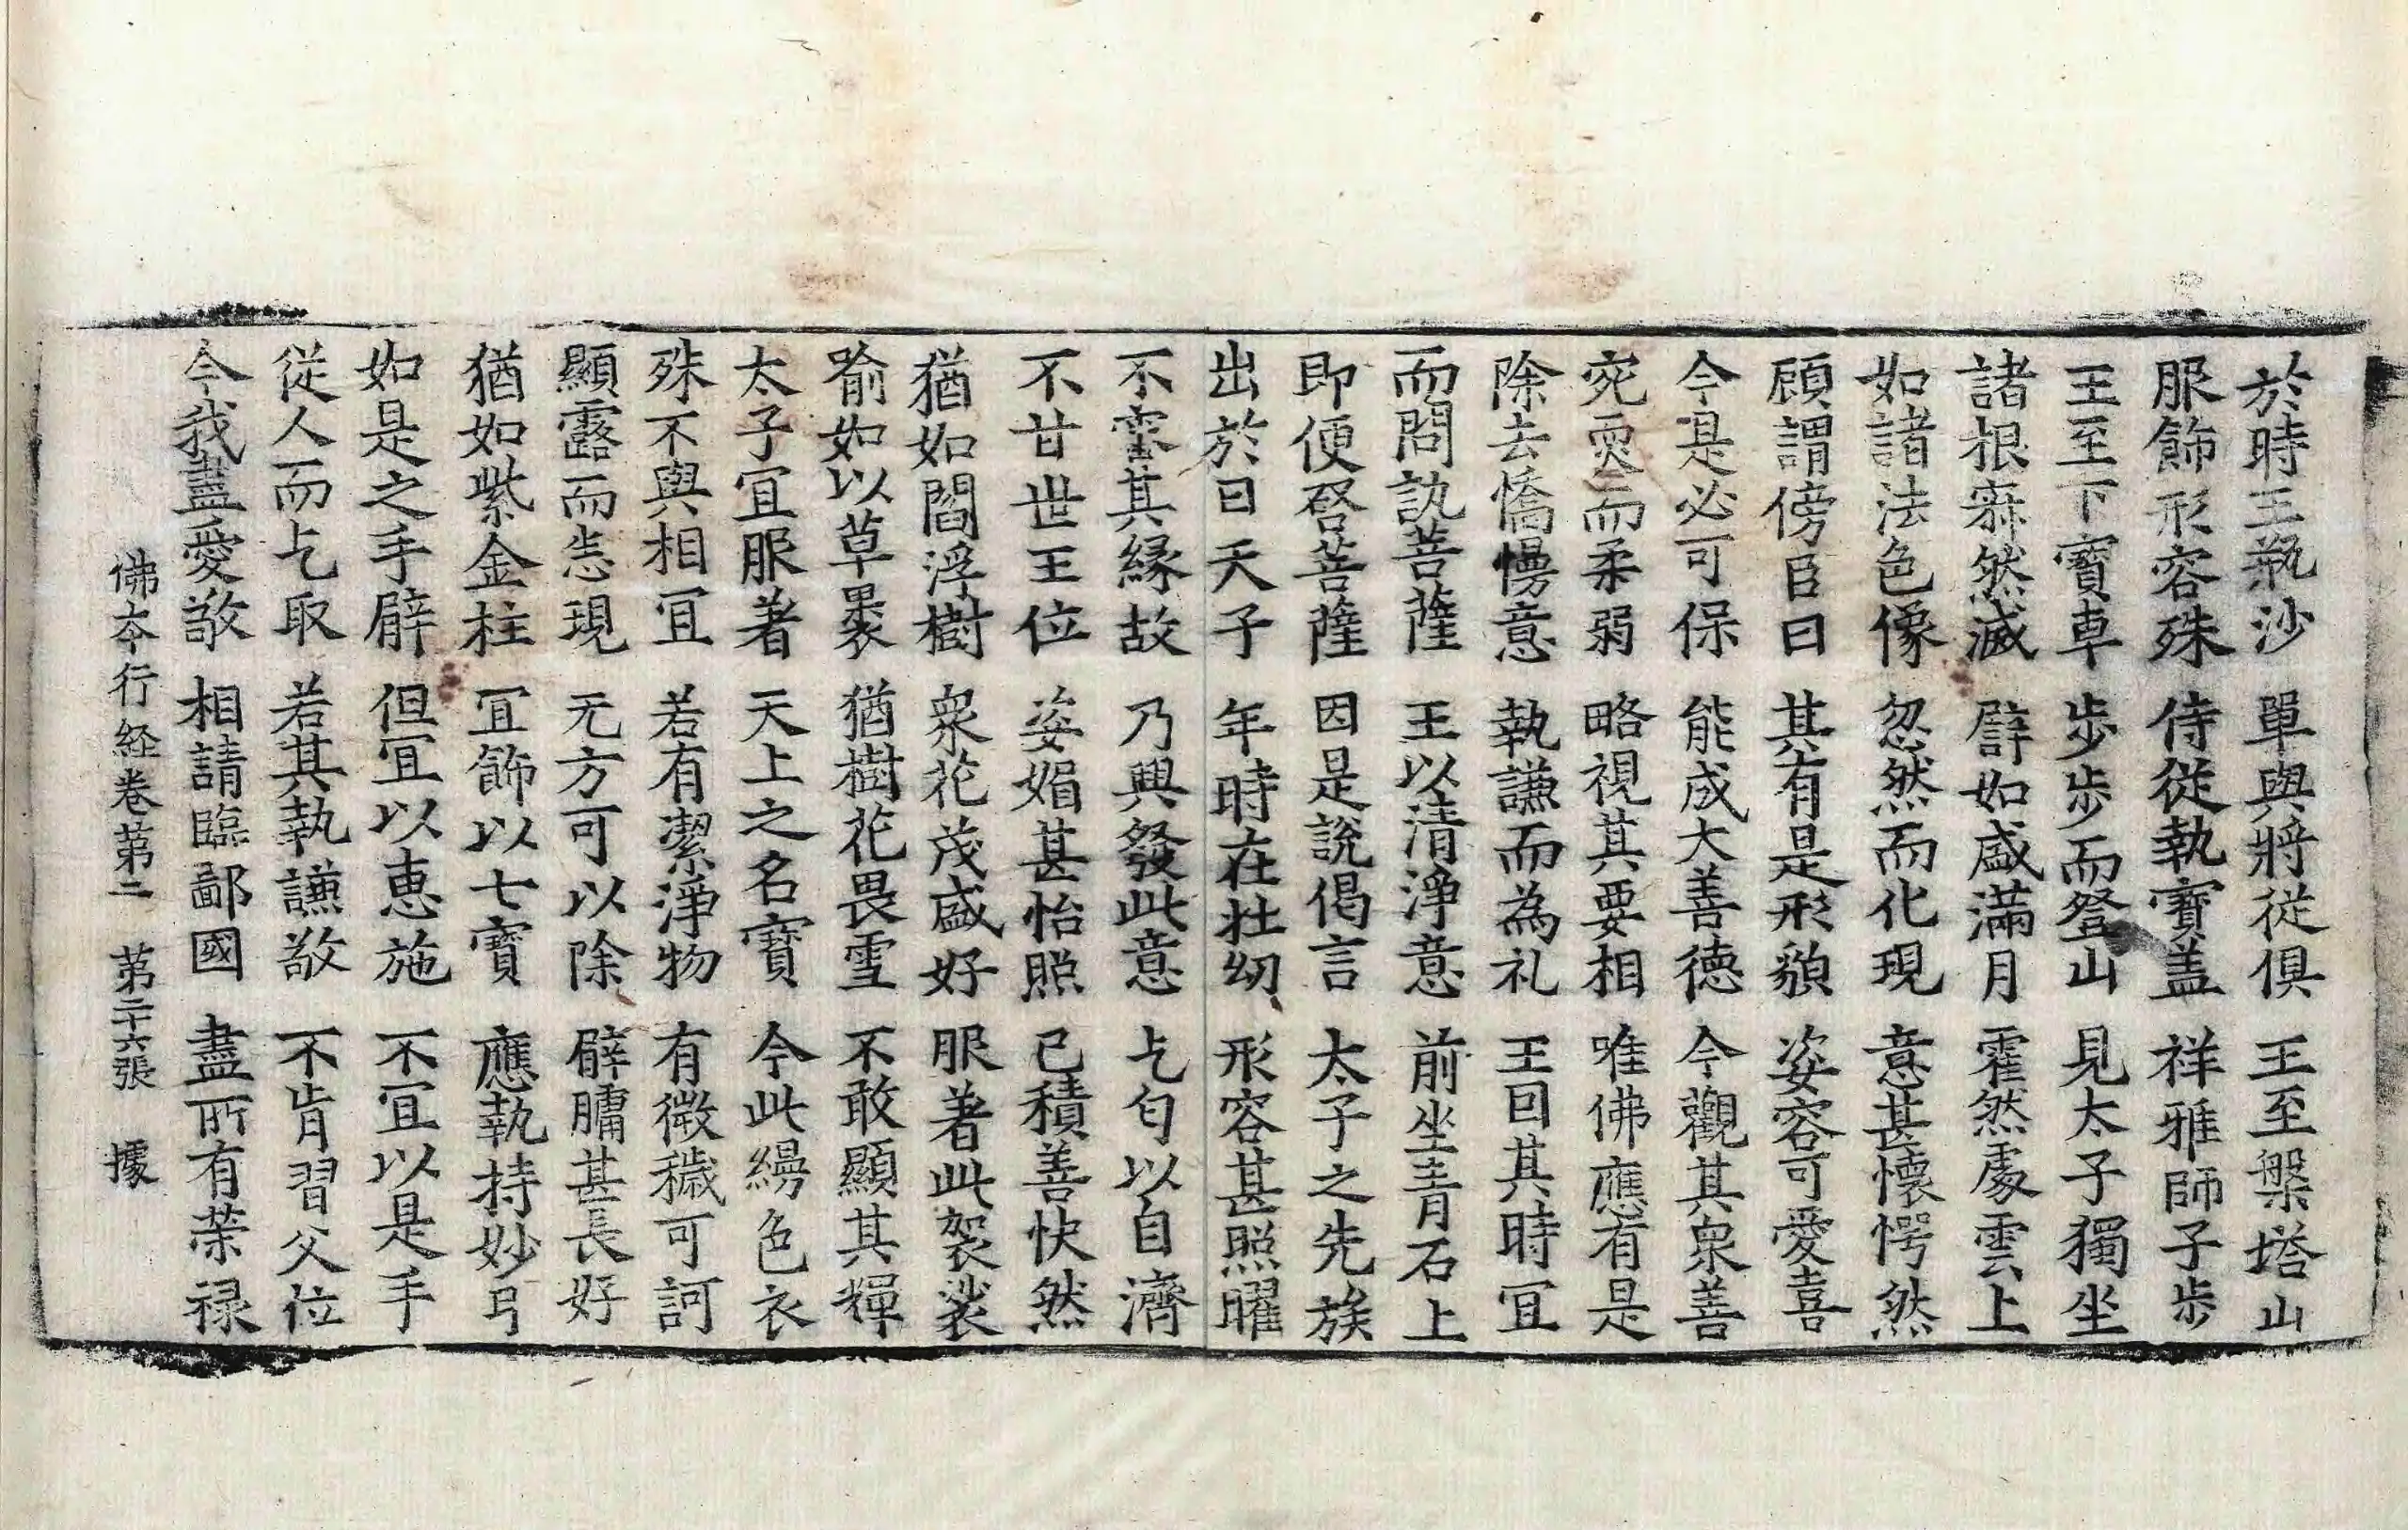 於時王甁沙　單與將從俱　王至槃塔山
服飾形容殊　侍從執寶盖　祥雅師子歩
王至下寶車　歩歩而登山　見太子獨坐
諸根寐然滅　辟如盛滿月　霍然處雲上
如諸法色像　忽然而化現　意甚懷愕然
顧謂傍臣曰　其有是形貌　姿容可愛喜
今是必可保　能成大善德　今觀其衆善
宛耎而柔弱　略視其要相　唯佛應有是
除去憍慢意　執謙而為礼　王回其時冝
而問訊菩薩　王以清淨意　前坐青石上
即便啓菩薩　因是說偈言　太子之先族
出於日天子　年時在壯幼　形容甚照曜
不審其縁故　乃興發此意　乞匂以自濟
不甘世王位　姿媚甚怡照　已積善快然
猶如閻浮樹　衆花茂盛好　服著此袈裟
喻如以草褁　猶樹花畏雪　不敢顯其輝
太子冝服著　天上之名寶　今此縵色衣
殊不與相冝　若有潔淨物　有微穢可訶
顯露而恙現　无方可以除　臂𦟛甚長好
猶如紫金柱　冝飾以七寶　應執持妙弓
如是之手臂　但冝以惠施　不冝以是手
從人而乞取　若其執謙敬　不肯習父位
今我盡愛敬　相請臨鄙國　盡所有荣禄
佛本行経卷苐二　苐二十六張　據